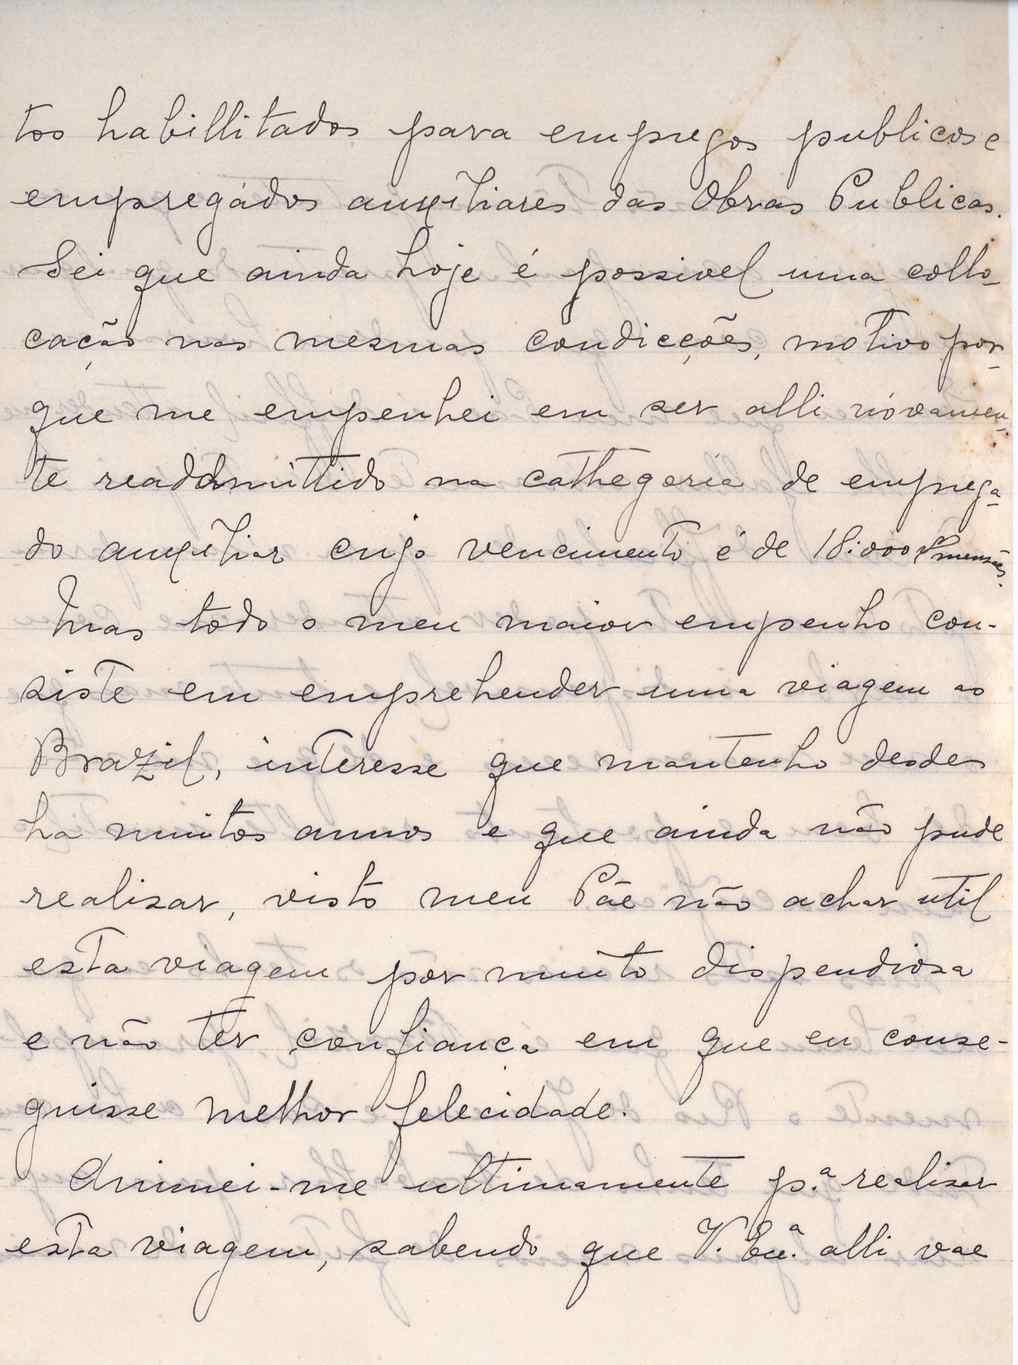 tos habillitados para empregos publicos e
empregádos auxiliares das Obras Publicas.
Sei que ainda hoje é possivel uma collo-
cação nas mesmas condicções, motivo por-
que me empenhei em ser alli nóvamen-
te readdmittido na cathegoria de emprega-
do auxiliar cujo vencimento é de 18:000 rs mensáes.
Mas todo o meu maior empenho con-
siste em emprehender uma viagem ao
Brazil, interesse que mantenho desde
ha muitos annos e que ainda não pude
realisar, visto meu Páe não achar util
esta viagem por muito dispendiosa
e não ter confiança em que eu conse-
guisse melhor felecidade.
Animei-me ultimamente p.ª realisar
esta viagem, sabendo que V. Exª. alli vae